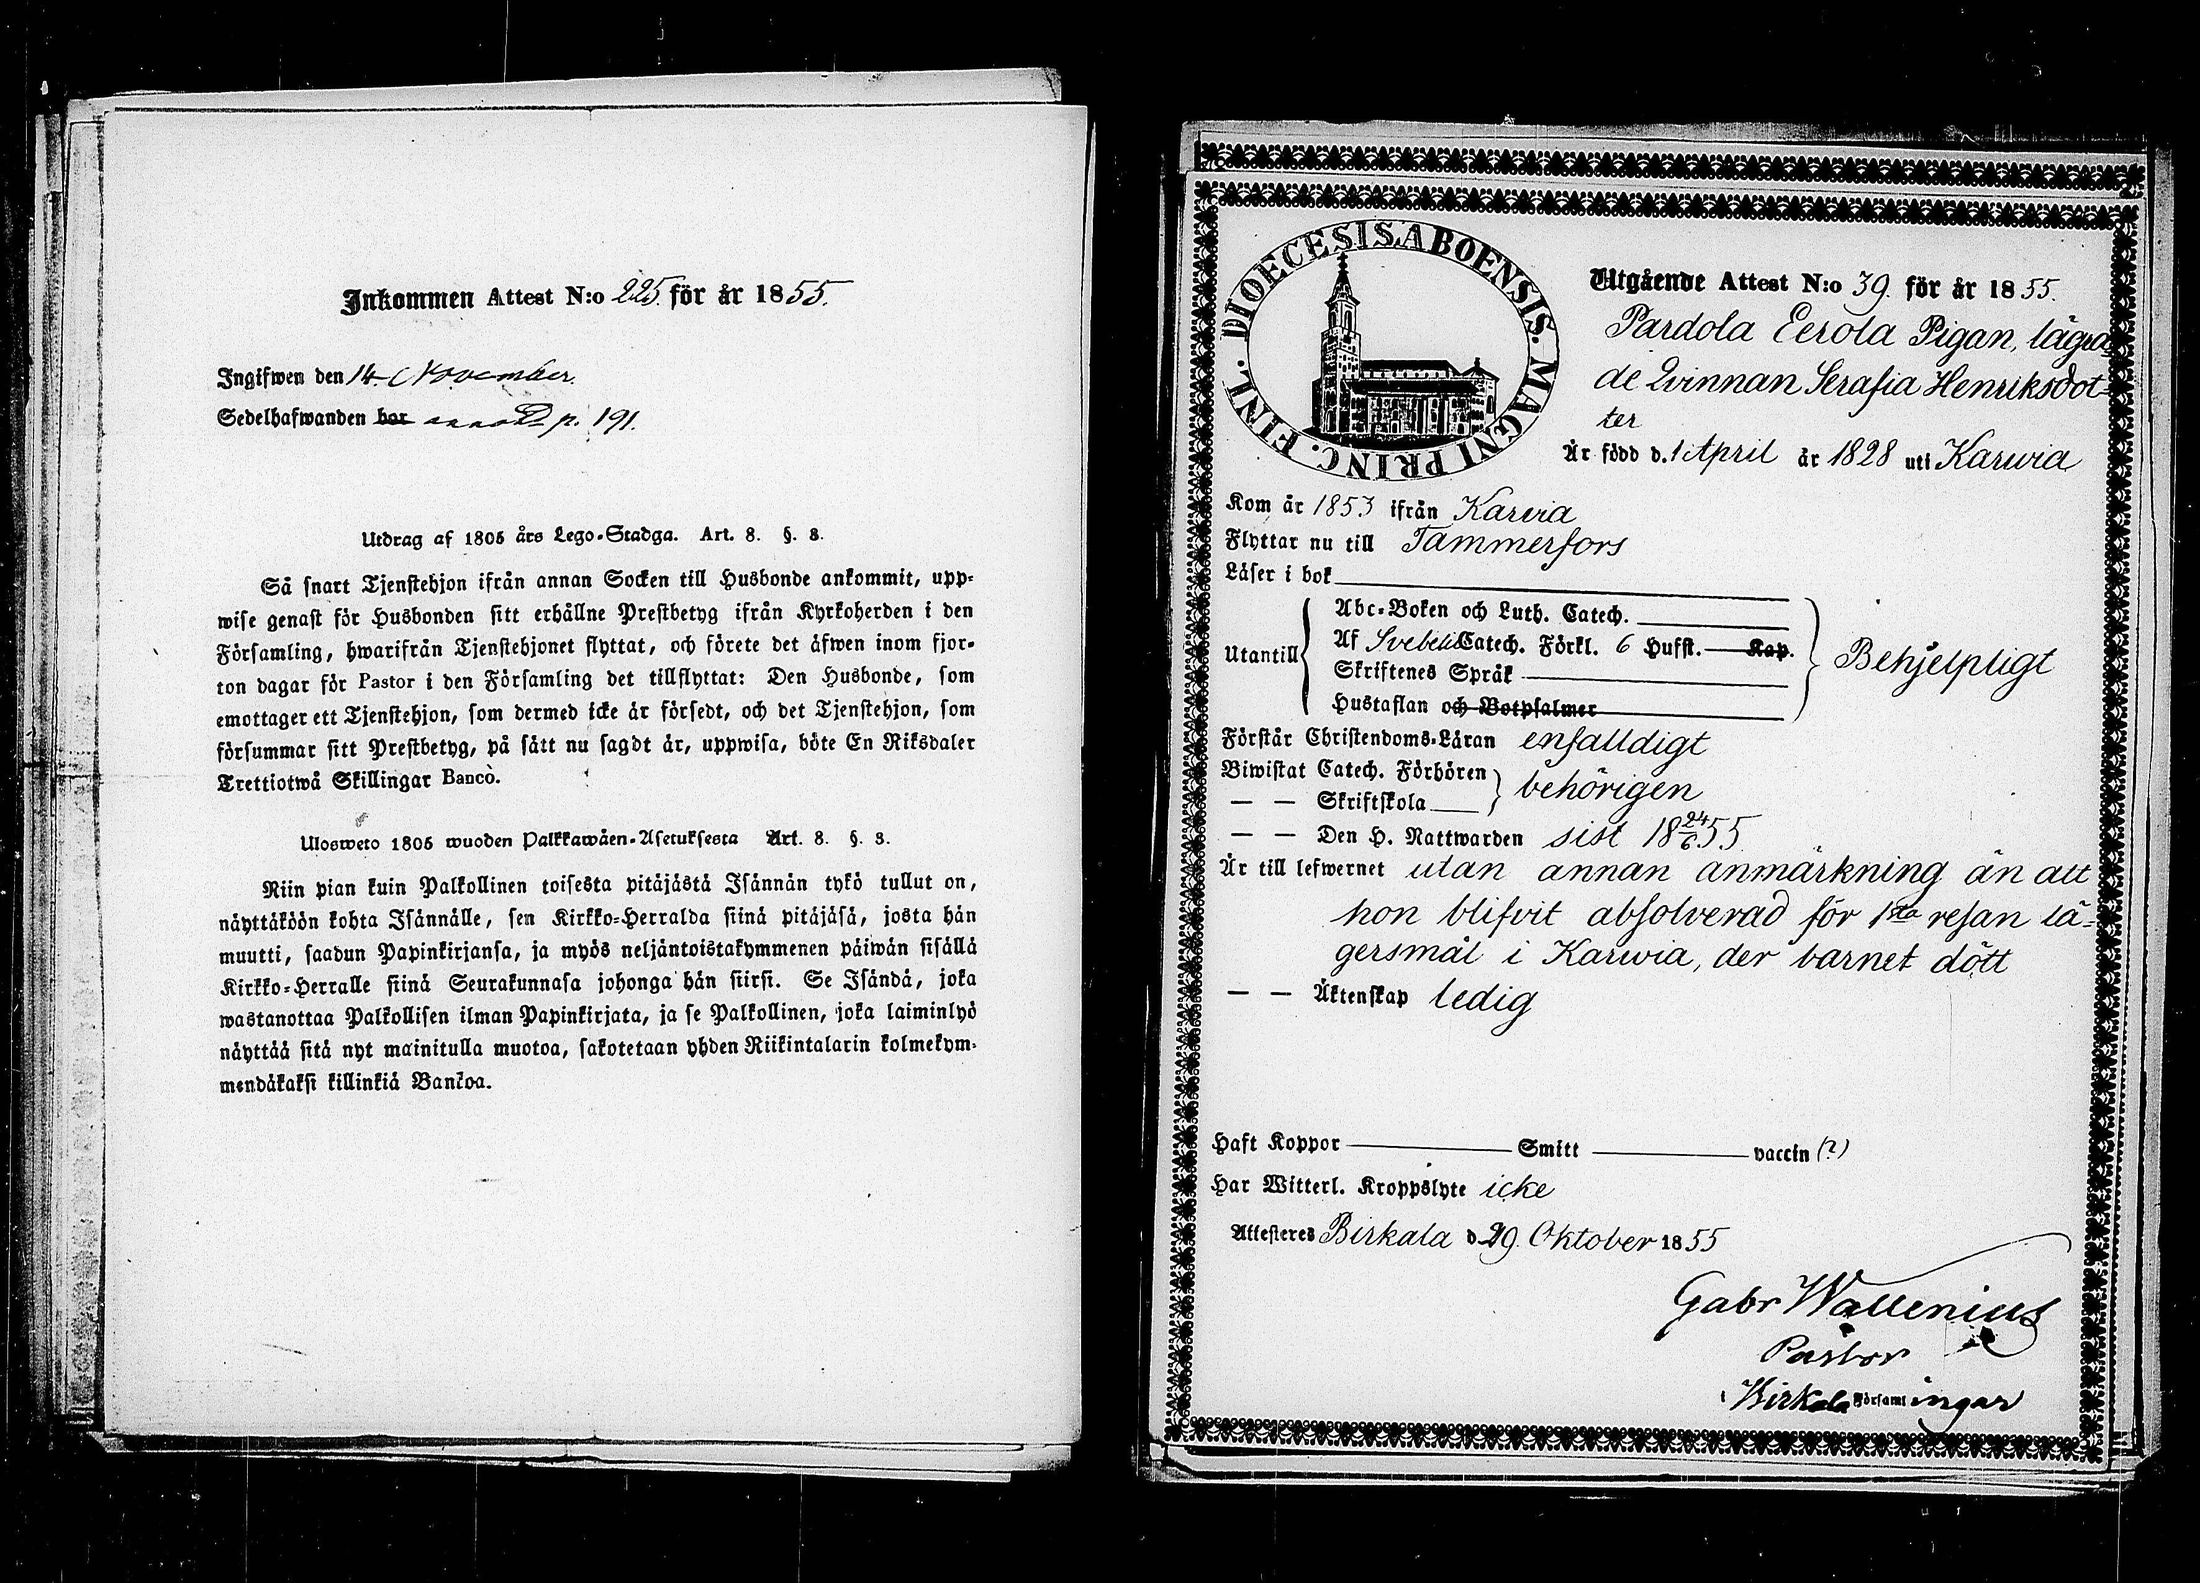 Inkommen Attest N:o 225. för år 1855.
Ingifwen den 14 November.
Sedelhafwanden bor p. 191.
Utdrag af 1805 års Lego-Stadga. Art. 8. §. 8.
Så snart Tjenstehjon ifrån annan Socken till Husbonde ankommit, upp-
wise genast för Husbonden sitt erhållne Prestbetyg ifrån Kyrkoherden i den
Församling, hwarifrån Tjenstehjonet flyttat, och förete det äfwen inom fjor-
ton dagar för Pastor i den Församling det tillflyttat: Den Husbonde, som
emottager ett Tjenstehjon, som dermed icke är försedt, och det Tjenstehjon, som
försummar sitt Prestbetyg, på sätt nu sagdt är, uppwisa, böte En Riksdaler
Trettiotwå Skillingar Banco.
Ulosweto 1805 wuoden Palkkawäen-Asetuksesta Art. 8. §. 8.
Niin pian kuin Palkollinen toisesta pitäjästä Isännän tykö tullut on,
näyttäköön kohta Isännälle, sen Kirkko-Herralda siinä pitäjäsä, josta hän
muutti, saadun Papinkirjansa, ja myös neljäntoistakymmenen päiwän sisällä
Kirkko-Herralle siinä Seurakunnasa johonga hän siirsi. Se Isändä, joka
wastanottaa Palkollisen ilman Papinkirjata, ja se Palkollinen, joka laiminlyö
näyttää sitä nyt mainitulla muotoa, sakotetaan yhden Riikintalarin kolmekym-
mendäkaksi killinkiä Bankoa.
DIOECESIS ABOENSIS. MAGNI PRINC. FINL.
Utgående Attest N:o 39. för år 1855.
Pardola Eerola Pigan, lägra
de Qvinnan Serafia Henriksdot-
ter
Är född d. 1 April år 1828 uti Karvia
Kom år 1853 ifrån Karvia
Flyttar nu till Tammerfors
Läser i bok
Utantill
Abc-Boken och Luth. Catech.
Af Svebelii Catech. Förkl. 6 Hufst. Kap.
Skriftenes Språk
Hustaflan och Botpsalmer
Behjelpligt
Förstår Christendoms-Läran enfalldigt
Biwistat Catech. Förhören
— — Skriftskola
behörigen
— — Den H. Nattwarden sist 18 24/6 55
Är till lefwernet utan annan anmärkning än att
hon blifvit absolverad för 1sta resan lä-
gersmål i Karvia, der barnet dött
— — Äktenskap ledig
Haft Koppor Smitt vaccin (?)
Har Witterl. Kroppslyte icke
Attesteres Birkala d. 29. Oktober 1855
Gabr Wallenius
Pastor
i Birkala Församlingar